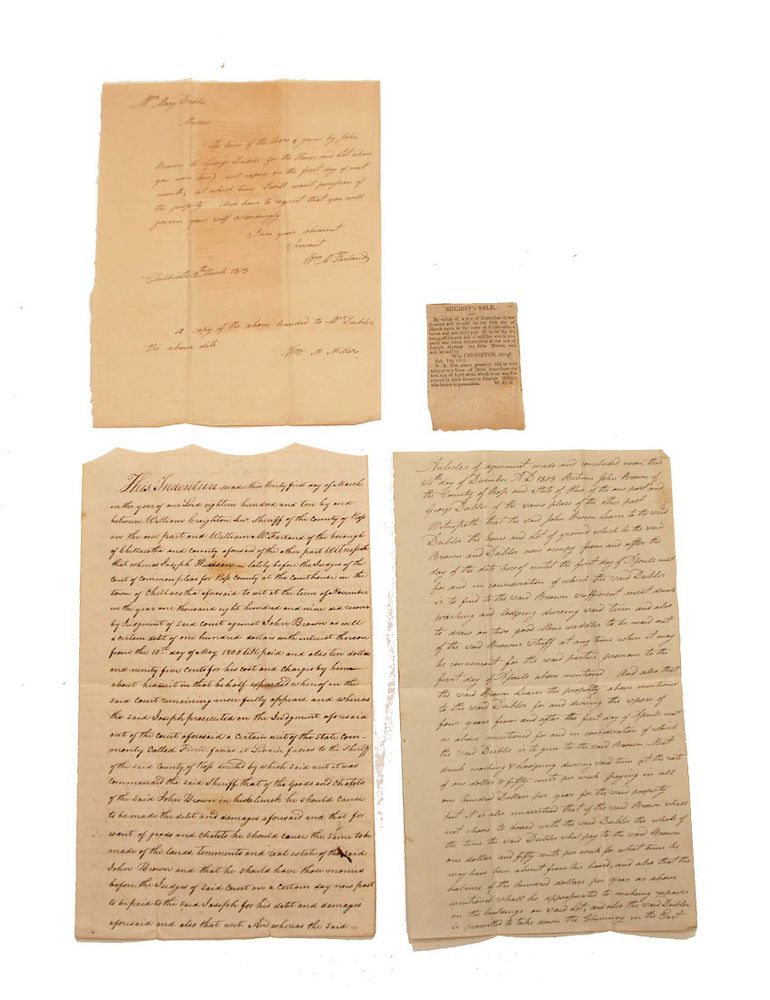 Mrs Mary Dubler
Madam
The term of the lease given by John
Brown to George Dubler for the House and Lot where
you now live will expire on the first day of next
month, at which time I will want possession of
the property. And have to request that you will
govern your self accordingly
I am your obedient
Servant
Wm McFarland
Chillicothe March 1813
A copy of the above handed to Mrs Dubler
the above date
Wm M. Miller
SHERIFF'S SALE.
Wm. CREIGHTON, sheriff.
N. B. The above property will be sold
subject to a lease of three years from the
first day of April next, which lease was
by John Brown to George
who is now in possession. W. C.
This Indenture made this thirty first day of March
in the year of our Lord eighteen hundred and ten by and
between William Creighton Junr Sheriff of the county of Ross
on the one part and William McFarland of the borough
of Chillicothe and county aforesaid of the other part Witnesseth
that whereas Joseph lately before the Judges of the
Court of common pleas for Ross county at the Courthouse in the
town of Chillicothe aforesaid to wit at the term of November
in the year one thousand eight hundred and nine did recover
by Judgment of said Court against John Brown as well
a certain debt of one hundred dollars with interest thereon
from the 10th day of May 1805 till paid and also ten dollars
and ninety five cents for his cost and charges by him
about his suit in that behalf expended whereof in the
said court remaining more fully appears, and whereas
the said Joseph prosecuted on the Judgment aforesaid
out of the court aforesaid a certain writ of the State com-
monly Called Fieri facias et Levari facias to the Sheriff
of the said County of Ross directed by which said writ it was
commanded the said Sheriff that of the Goods and Chatels
of the Said John Brown in his bailiwick he should cause
to be made the debt and damages aforesaid and that for
want of goods and chatels he should cause the same to be
made of the lands teniments and real estate of the said
John Brown and that he should have those monies
before the Judges of Said Court on a certain day now past
to be paid to the said Joseph for his debt and damages
aforesaid and also that writ. And whereas the said
Articles of agreement made and concluded upon this
24th day of December AD 1808 Between John Brown of
the County of Ross and State of Ohio of the one part and
George Dubler of the same place of the other part
Witnesseth that the said John Brown leases to the said
Dubler the house and Lot of ground which he the said
Brown and Dubler now occupy from and after the
day of the date hereof until the first day of Aprile next
for and in consideration of which the said Dubler
is to find to the said Brown sufficient meat drink
washing and lodging during said term and also
to draw on two good Mens saddles to be made out
of the said Browns Stuff at any time when it may
be convenient for the said parties previous to the
first day of Aprile above mentioned And also that
the said Brown Leases the property above mentioned
to the said Dubler for and during the space of
four years from and after the first day of Aprile next
as above mentioned for and in consideration of which
the said Dubler is to give to the said Brown Meat
drink washing & Lodging during said term at the rate
of one dollar & fifty cents per week paying in all
one hundred Dollars per year for the said property
but it is also understood that if the said Brown shall
not choose to board with the said Dubler the whole of
the time the said Dubler shal pay to the said Brown
one dollar and fifty cents per week for what time he
may have been absent from his board, and also that the
balance of the hundred dollars per year as above
mentioned shall be appropriated to makeing repairs
on the buildings on said Lot, and also the said Dubler
is permitted to take down the Chimney in the East